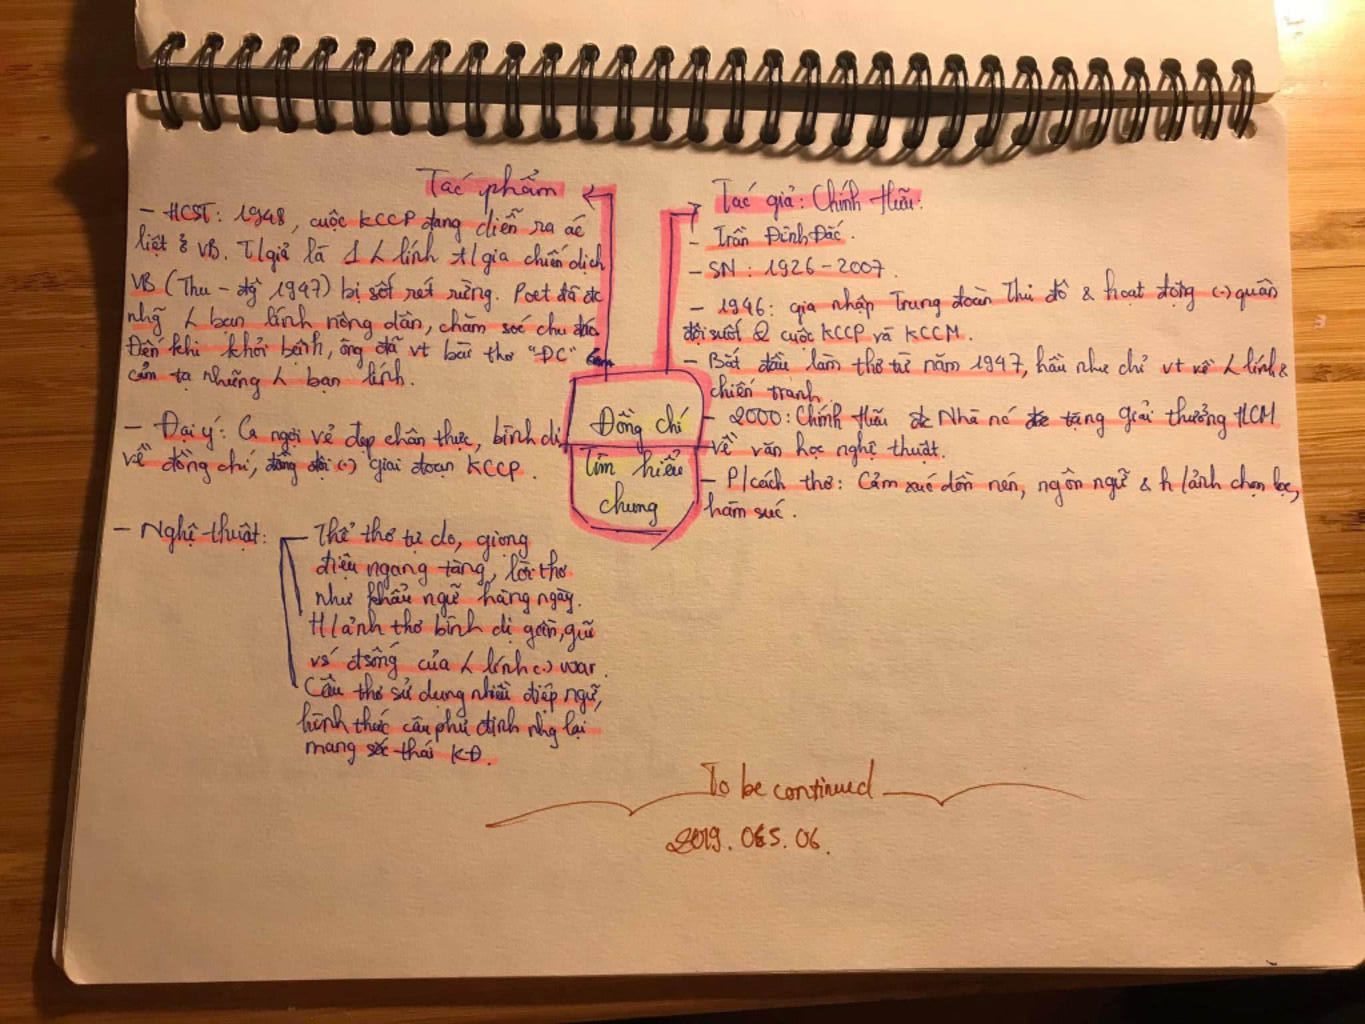 Tác phẩm
- HCST: 1948, cuộc KCCP đang diễn ra ác
liệt ở VB. T/giả là 1 L lính t/gia chiến dịch
VB (Thu - đg 1947) bị sốt rét rừng. Poet đã đc
nhg L bạn lính nông dân, chăm sóc chu đáo
Đến khi khỏi bệnh, ông đã vt bài thơ "ĐC"
cảm tạ những L bạn lính.
- Đại ý: Ca ngợi vẻ đẹp chân thực, bình dị
về đồng chí, đồng đội (·) giai đoạn KCCP.
- Nghệ thuật:
- Thể thơ tự do, giọng
điệu ngang tàng, lời thơ
như khẩu ngữ hàng ngày.
H/ảnh thơ bình dị gần, gũi
vs đsống của L lính (·) war.
Câu thơ sử dụng nhiều điệp ngữ,
hình thức câu phủ định nhg lại
mang sắc thái KĐ.
Đồng chí
Tìm hiểu
chung
Tác giả: Chính Hữu.
- Trần Đình Đắc.
- SN: 1926-2007.
- 1946: gia nhập Trung đoàn Thủ đô & hoạt động (·) quân
đội suốt 2 cuộc KCCP và KCCM.
- Bắt đầu làm thơ từ năm 1947, hầu như chỉ vt về L lính &
chiến tranh
- 2000: Chính Hữu đc Nhà nc tặng giải thưởng HCM
về văn học nghệ thuật.
- P/cách thơ: Cảm xúc dồn nén, ngôn ngữ & h/ảnh chọn lọc,
hàm súc.
To be continued
2019. 05. 06.